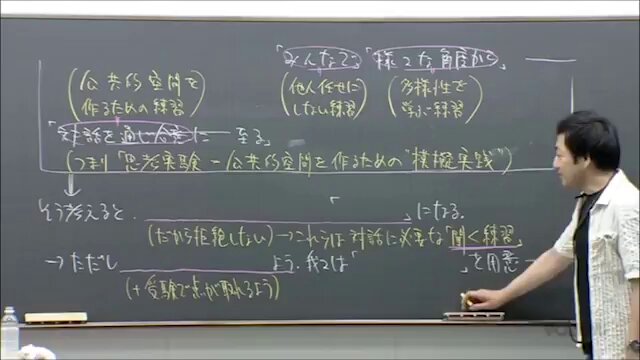 「みんなで」「様々な角度から」
(公共的空間を作るための練習) (他人任せにしない練習) (多様性を学ぶ練習)
「対話を通じ合意に」至る。
(つまり「思考実験-公共的空間を作るための"模擬実践")
そう考えると、 「 」になる。
(だから拒絶しない)→これらは対話に必要な「聞く練習」
→ただし よう、我々は「 」を用意
(+受験で点が取れるよう)